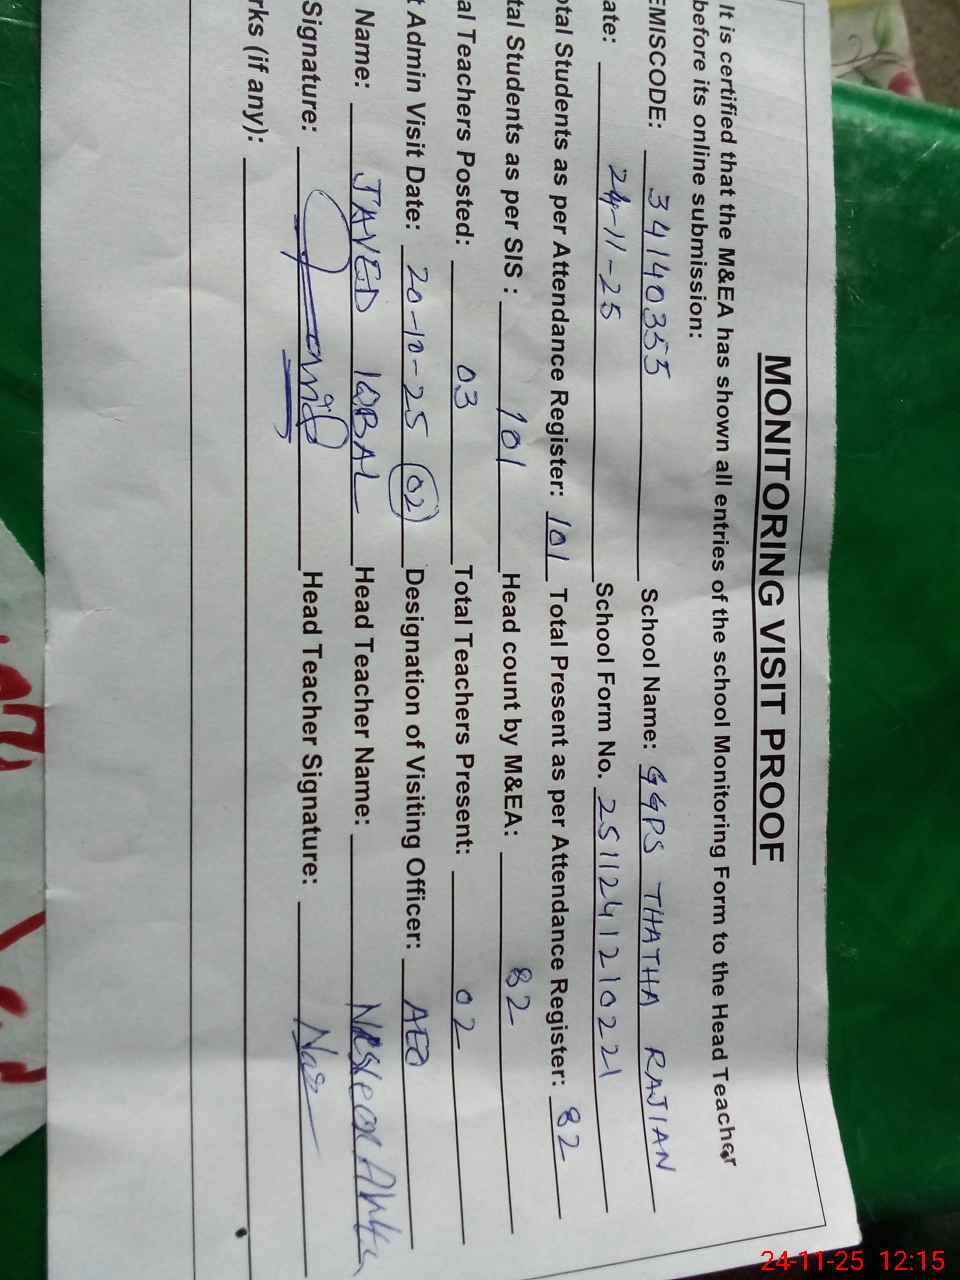 MONITORING VISIT PROOF
It is certified that the M&EA has shown all entries of the school Monitoring Form to the Head Teacher
before its online submission:
EMISCODE: 34140355 School Name: GGPS THATHA RAJIAN
ate: 24-11-25 School Form No. 2511241210221
otal Students as per Attendance Register: 101 Total Present as per Attendance Register: 82
tal Students as per SIS : 101 Head count by M&EA: 82
al Teachers Posted: 03 Total Teachers Present: 02
t Admin Visit Date: 20-10-25 02 Designation of Visiting Officer: AEO
Name: JAVED IQBAL Head Teacher Name:
Signature: Head Teacher Signature:
rks (if any):
24-11-25 12:15